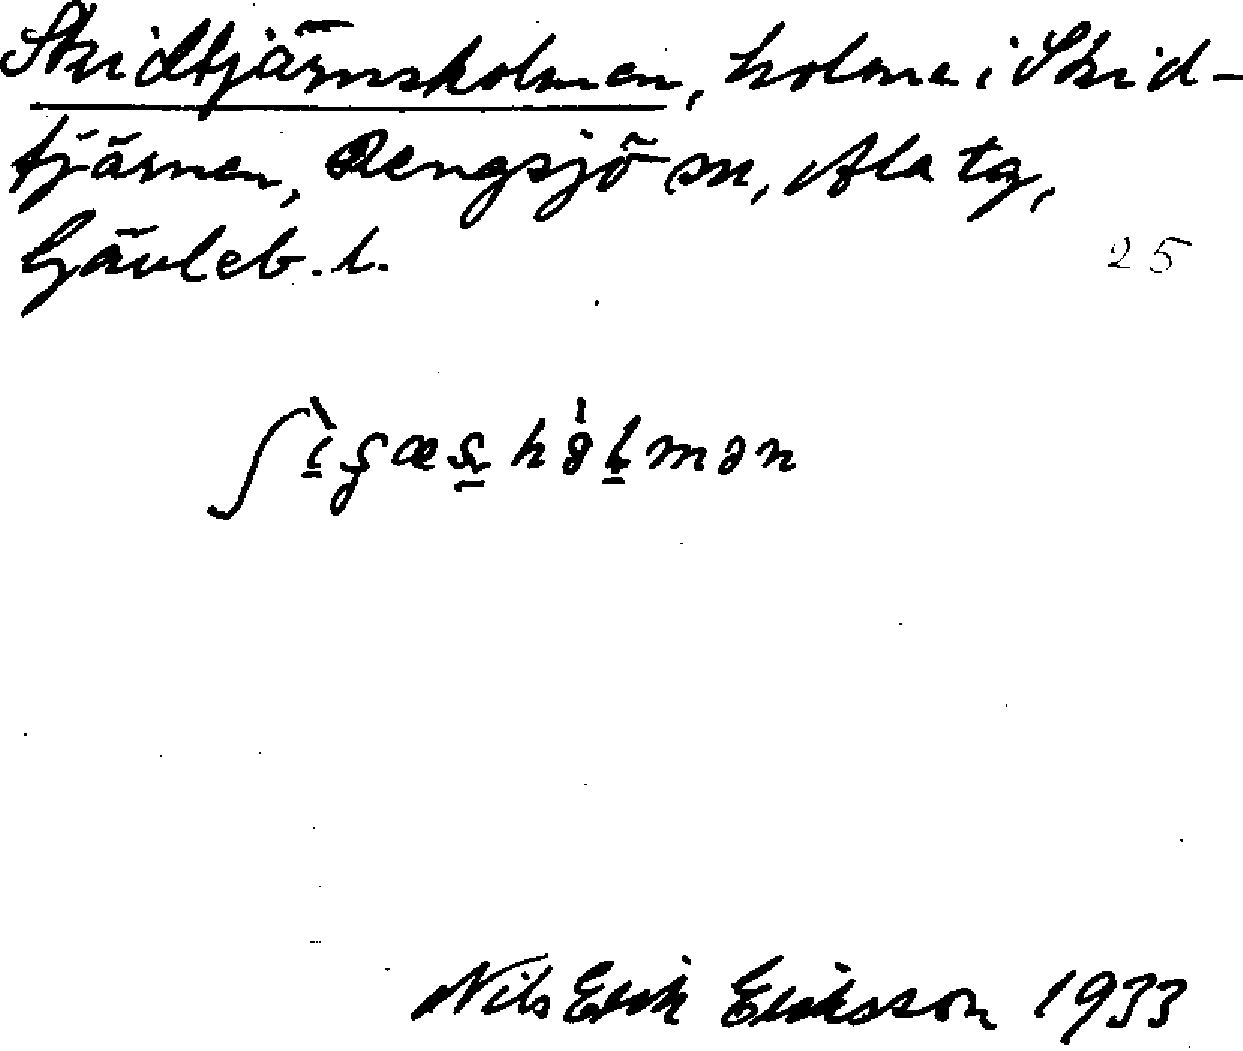 Skidtjärnsholmen, holme i Skid-
tjärnen, Rengsjö sn, Ala tg,
Gävleb. l.
25
Nils Erik Eriksson 1933